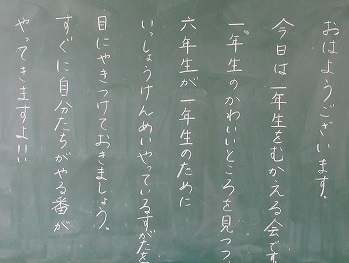 おはようございます。
今日は一年生をむかえる会です
一年生のかわいいところを見つつ
六年生が一年生のために
いっしょうけんめいやっているすがたを
目にやきつけておきましょう。
すぐに自分たちがやる番が
やってきますよ!!